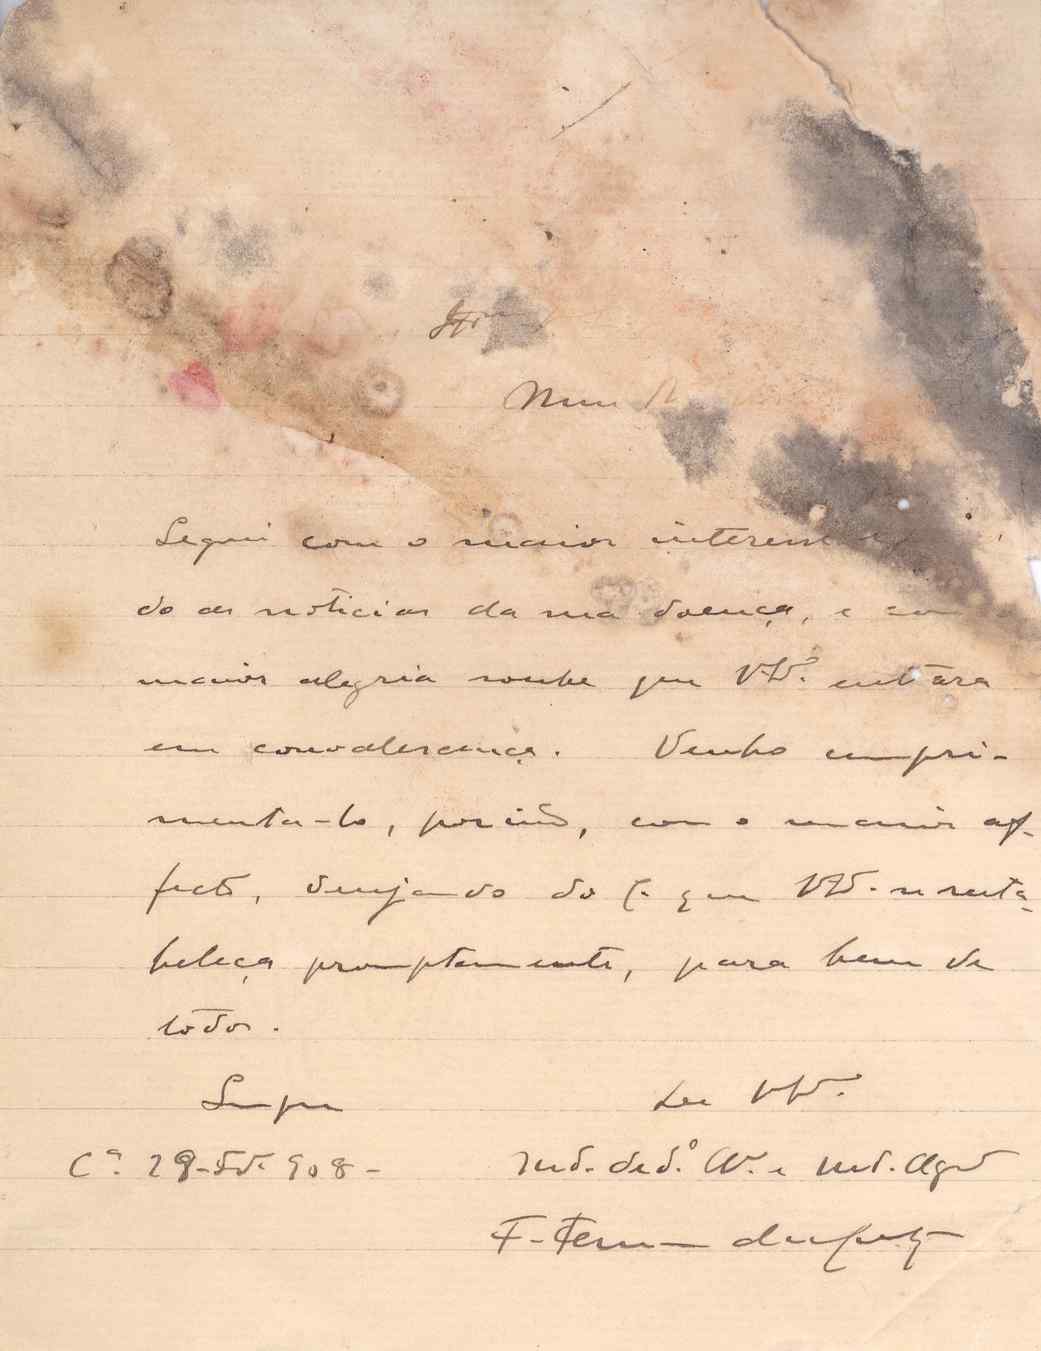 Meu
Segui com o maior interesse
do as noticias da sua doença, e com
maior alegria soube que V. entrára
em convalescença. Venho cumpri-
menta-lo, por isso, com o maior af-
fecto, desejando do C. que V. se resta-
beleça promptamente, para bem de
todos.
Sempre De V.
C.ª 29- 908-
Mt. ded.º Am. e Mt. Agr.
F.